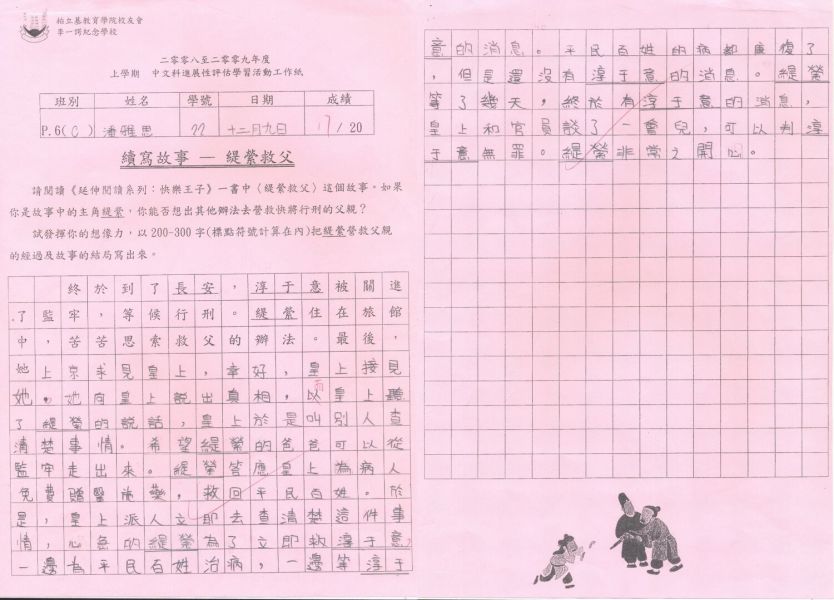 柏立基教育學院校友會
李一諤紀念學校
二零零八至二零零九年度
上學期 中文科進展性評估學習活動工作紙
班別 姓名 學號 日期 成績
P.6(C) 潘雅思 22 十二月九日 17/20
續寫故事 — 緹縈救父
請閱讀《延伸閱讀系列：快樂王子》一書中〈緹縈救父〉這個故事。如果
你是故事中的主角緹縈，你能否想出其他辦法去營救快將行刑的父親？
試發揮你的想像力，以200-300字(標點符號計算在內)把緹縈營救父親
的經過及故事的結局寫出來。
終於到了長安，淳于意被關進
了監牢，等候行刑。緹縈住在旅館
中，苦苦思索救父的辦法。最後，
她上京求見皇上，幸好，皇上接見
她，她向皇上說出真相，以皇上聽
而
了緹榮的說話，皇上於是叫別人查
清楚事情。希望緹榮的爸爸可以從
監牢走出來。緹榮答應皇上為病人
免費贈醫施藥，救回平民百姓。於
是，皇上派人立即去查清楚這件事
情，心急的緹榮為了立即救淳于意，
一邊為平民百姓治病，一邊等淳于
意的消息。平民百姓的病都康復了
，但是還沒有淳于意的消息。緹榮
等了幾天，終於有淳于意的消息，
皇上和官員談了一會兒，可以判淳
于意無罪。緹榮非常之開心。